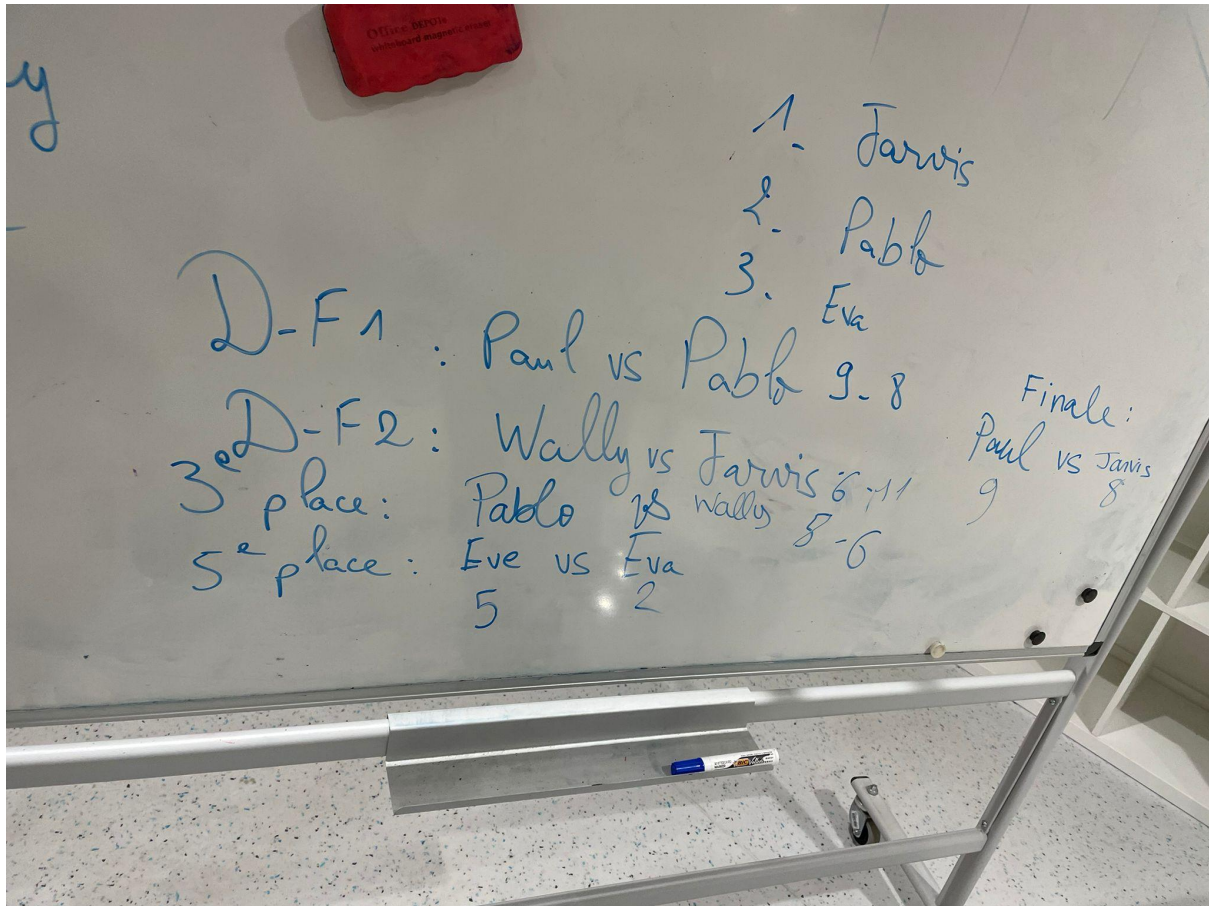 y
Office DEPOT
whiteboard magnetic eraser
1. Jarvis
2. Pablo
3. Eva
D-F1 : Paul vs Pablo 9-8
D-F2 : Wally vs Jarvis 6-11
3e place : Pablo vs Wally 8-6
5e place : Eve vs Eva
5 2
Finale :
Paul vs Jarvis
9 8